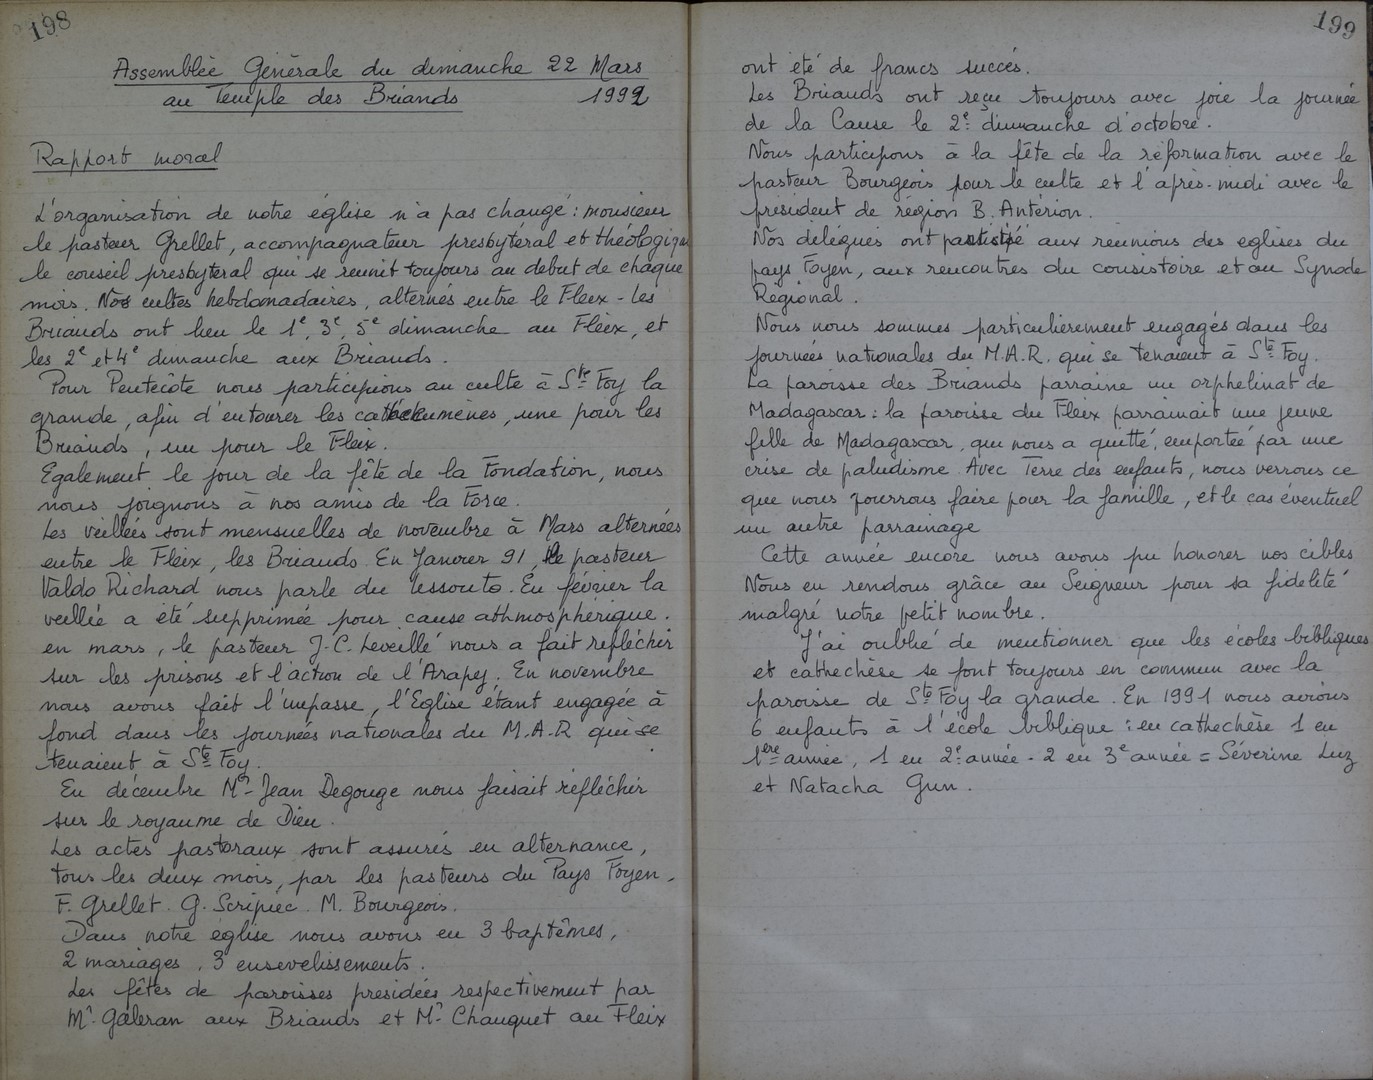 198
Assemblée Générale du dimanche 22 Mars
au Temple des Briands 1992
Rapport moral
L'organisation de notre église n'a pas changé : monsieur
le pasteur Grellet, accompagnateur presbytéral et théologiqu
le conseil presbytéral qui se reunit toujours au début de chaque
mois. Nos cultes hebdomadaires, alternés entre le Fleix - Les
Briands ont lieu le 1e, 3e, 5e dimanche au Fleix, et
les 2e et 4e dimanche aux Briands.
Pour Pentecôte nous participions au culte à Ste Foy la
grande, afin d'entourer les cathécumènes, une pour les
Briands, un pour le Fleix.
Egalement le jour de la fête de la Fondation, nous
nous joignons à nos amis de la Force.
Les veillées sont mensuelles de novembre à Mars alternées
entre le Fleix, les Briands. En Janvier 91, le pasteur
Valdo Richard nous parle du Lessouto. En février la
veillée a été supprimée pour cause athmosphérique.
en mars, le pasteur J-C. Leveillé nous a fait réfléchir
sur les prisons et l'action de l'Arapej. En novembre
nous avons fait l'impasse, l'Eglise étant engagée à
fond dans les journées nationales du M.A.R qui se
tenaient à Ste Foy.
En décembre Mr Jean Degouge nous faisait réfléchir
sur le royaume de Dieu.
Les actes pastoraux sont assurés en alternance,
tous les deux mois, par les pasteurs du Pays Foyen.
F. Grellet. G. Scripiec. M. Bourgeois.
Dans notre église nous avons eu 3 baptêmes,
2 mariages, 3 ensevelissements.
Les fêtes de paroisses présidées respectivement par
Mr Galeran aux Briands et Mr Chauquet au Fleix
199
ont été de francs succés.
Les Briands ont reçu toujours avec joie la journée
de la Cause le 2e dimanche d'octobre.
Nous participons à la fête de la réformation avec le
pasteur Bourgeois pour le culte et l'après-midi avec le
président de région B. Antérion.
Nos délégués ont participé aux réunions des eglises du
pays Foyen, aux rencontres du consistoire et au Synode
Régional.
Nous nous sommes particulièrement engagés dans les
journées nationales du M.A.R. qui se tenaient à Ste Foy.
La paroisse des Briands parraine un orphelinat de
Madagascar : la paroisse du Fleix parrainait une jeune
fille de Madagascar, qui nous a quitté, emportée par une
crise de paludisme. Avec Terre des enfants, nous verrons ce
que nous pourrons faire pour la famille, et le cas éventuel
un autre parrainage
Cette année encore nous avons pu honorer nos cibles
Nous en rendons grâce au Seigneur pour sa fidélité
malgré notre petit nombre.
J'ai oublié de mentionner que les écoles bibliques
et cathechèse se font toujours en commun avec la
paroisse de Ste Foy la grande. En 1991 nous avions
6 enfants à l'école biblique : en cathechèse 1 en
1ère année, 1 en 2e année - 2 en 3e année = Séverine Luz
et Natacha Gun.